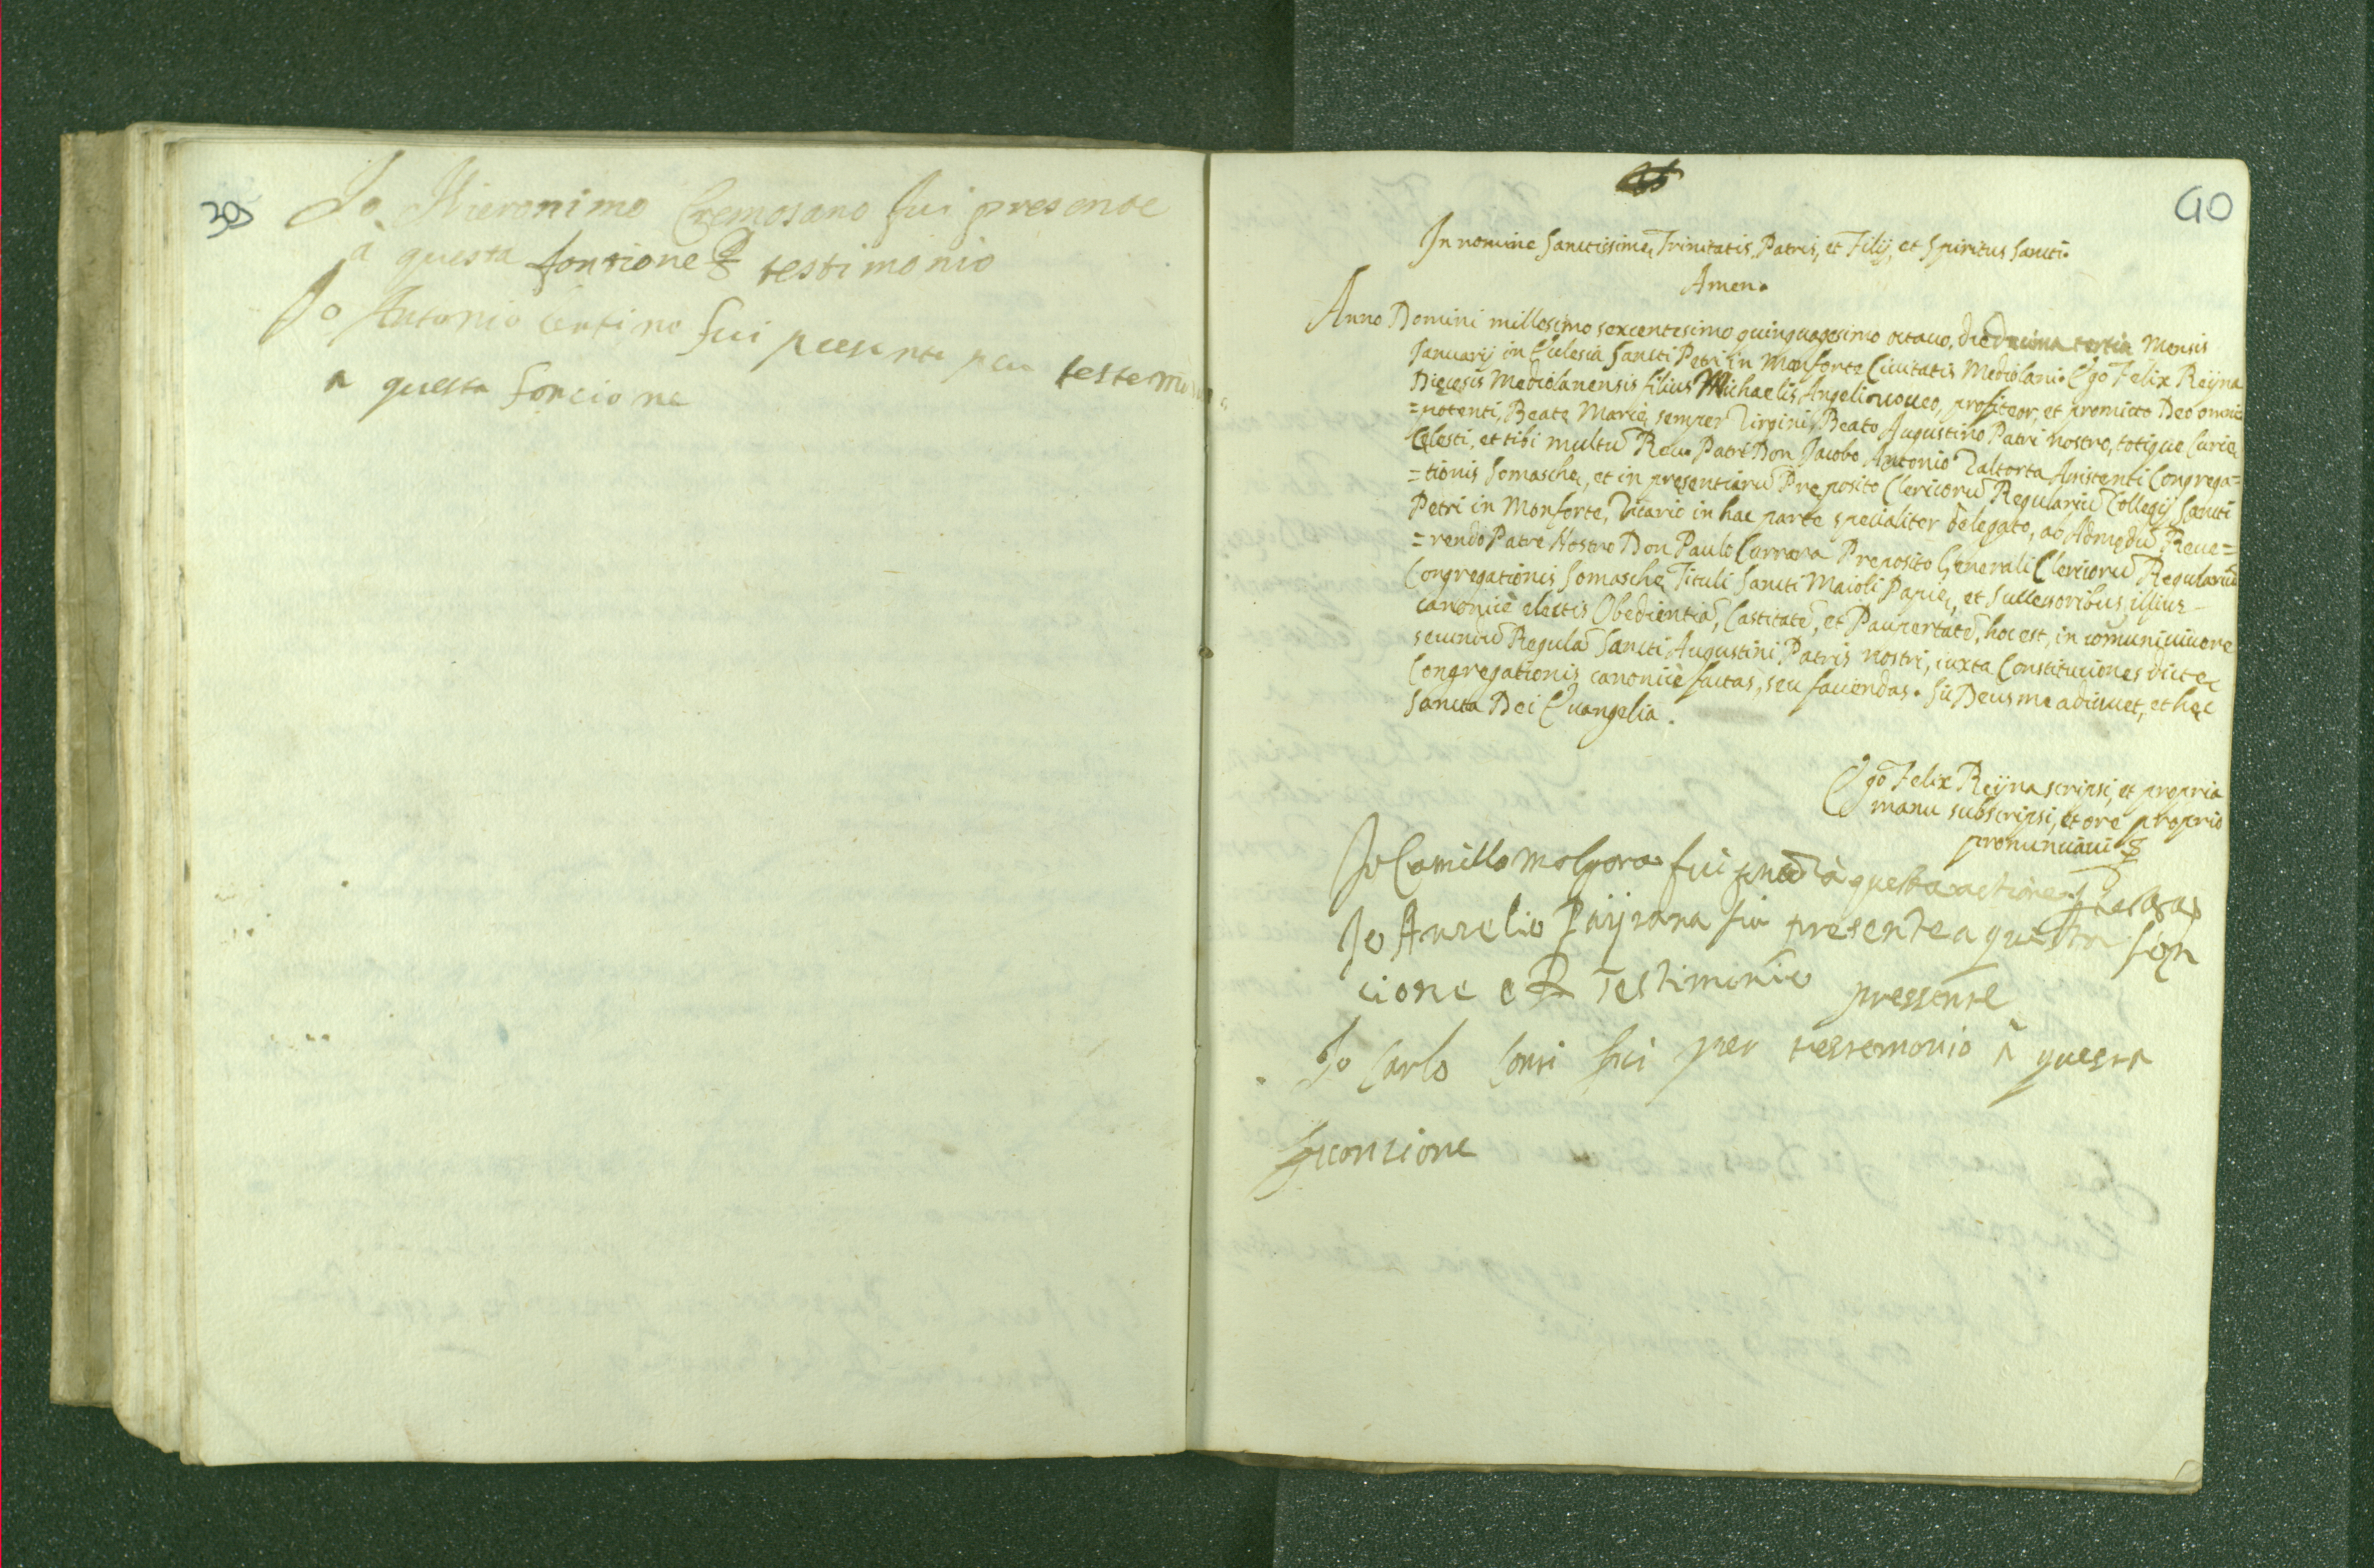 39
Io Hieronimo Cremosano fui presente
à questa fontione ꝑ testimonio
Io Antonio fui presente per testemonio
a questa foncione
40
In nomine Sanctissimę Trinitatis, Patris, et Filij, et Spiritus Sancti.
Amen.
Anno Domini millesimo sexcentesimo quinquagesimo octavo, die decima tertia Mensis
Januarij in Ecclesia Sancti Petri in Monforte Civitatis Mediolani. Ego Felix Reÿna
Dięcesis Mediolanensis filius Michaelis Angeli voueo, profiteor, et promitto Deo omni=
=potenti, Beatę Marię semper Virgini, Beato Augustino Patri nostro, totique Curię
Cęlesti, et tibi multũ Reu. Patri Don Jacobo Antonio Valtorta Assistenti Congrega=
=tionis Somaschę, et in presentiarũ Pręposito Clericorũ Regulariũ Collegij Sancti
Petri in Monforte, Vicario in hac parte specialiter delegato, ab Admodũ Reue=
=rendo Patre Nostro Don Paulo Carrara Preposito Generali Clericorũ Regulariũ
Congregationis Somaschę Tituli Sancti Maioli Papię, et Successoribus illius
canonicè electis Obedientiã, Castitatẽ, et Paupertatẽ, hoc est, in comuni viuere
secundũ Regulã Sancti Augustini Patris nostri, iuxta Constitutiones dictę
Congregationis canonicè factas, seu faciendas. Sic Deus me adiuuet, et hęc
Sancta Dei Euangelia.
Ego Felix Reÿna scripsi, et propria
manu subscripsi, et ore proprio
pronunciaui
Io Camillo Molgora fui à questa actione
Io Aurelio fui presente a questa fon
cione e ꝑ testimonio
pressente
Io Carlo fui per testemonio à questa
fuonzione